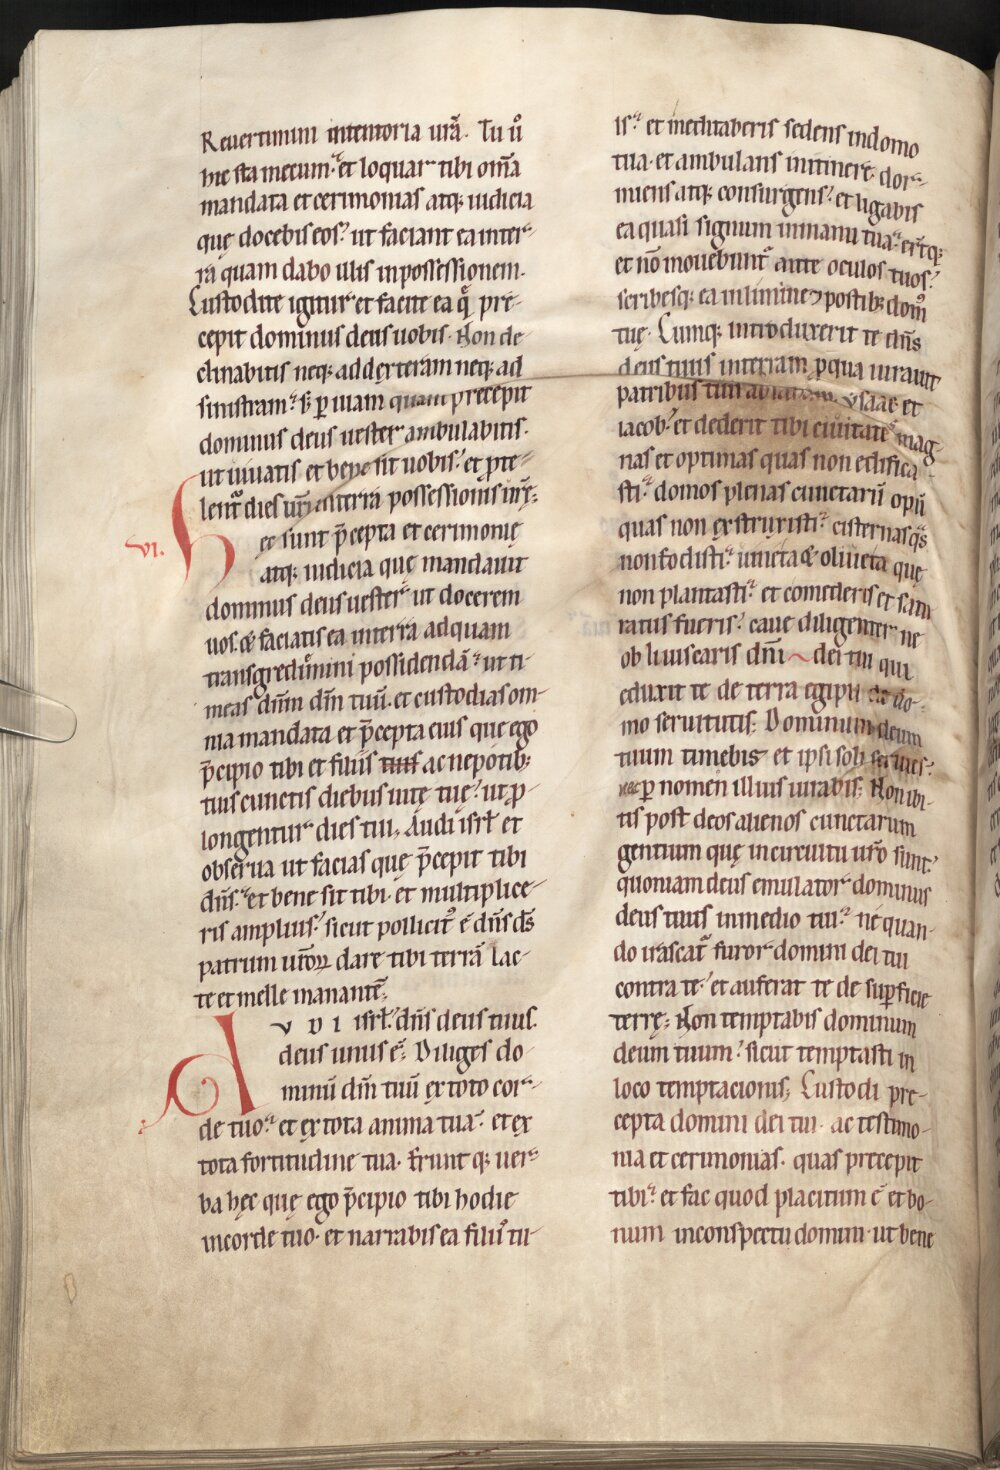 Reuertimini intentoria urā. Tu u͛o
hic sta mecum. et loquar tibi om̄a
mandata et cerimonias atq; iudicia
quę docebis eos? ut faciant ea inter-
ra quam dabo illis in possessionem.
Custodite igitur et facite ea q̄ pre-
cepit dominus deus uobis. Non de-
clinabitis neq; ad dexteram neq; ad
sinistram. s; ꝑ uiam quam precepit
dominus deus uester ambulabitis.
ut uiuatis et bene sit uobis. et ꝓte-
lent᷑ dies ur̄i in terra possessionis ur̄ę;
vi.
Hęc sunt p̄cepta et cerimonię
atq; iudicia quę mandauit
dominus deus uester ut docerem
uos. & faciatis ea in terra ad quam
transgredimini possidendā. ut ti-
meas dn̄m dm̄ tuū. et custodias om-
nia mandata et p̄cepta eius que ego
p̄cipio tibi et filiis tuis ac nepotib;
tuis cunctis diebus uitę tuę. ut ꝓ-
longentur dies tui. Audi isrl̄ et
obserua ut facias quę p̄cepit tibi
dn̄s. et bene sit tibi. et multiplice-
ris amplius. sicut pollicit᷒ ē dn̄s ds̄
patrum tuoꝝ dare tibi terrā lac-
te et melle manantē.
AVDI isrl̄. dn̄s deus tuus.
deus unus ē. Diliges do-
minū dm̄ tuū ex toto cor-
de tuo. et ex tota anima tua. et ex
tota fortitudine tua. Erunt q; uer-
ba hęc quę ego p̄cipio tibi hodie
in corde tuo. et narrabis ea filiis tu-
is. et meditaberis sedens in domo
tua. et ambulans in itinere. dor-
miens atq; consurgens. et ligabis
ea quasi signum in manu tua. erītq;
et nō mouebunt᷑ ante oculos tuos.
scribesq; ea in limine & postib; dom᷒
tuę. Cumq; introduxerit te dn̄s
deus tuus in terram ꝓ qua iurauit
patribus tuis abraham ysaac et
iacob. et dederit tibi ciuitates mag-
nas et optimas quas non edifica-
sti. domos plenas cunctarū opū
quas non exstruxisti. cisternas q̄s
non fodisti. uineta & oliueta quę
non plantasti. et comederis et satu-
ratus fueris. caue diligenter ne
obliuiscaris dn̄i dei tui qui
eduxit te de terra egipti de do-
mo seruitutis. Dominum deum
tuum timebis et ipsi soli seruies.
ꝑ nomen illius iurabis. Non ibi-
tis post deos alienos cunctarum
gentium quę in circuitu ur̄o sunt.
quoniam deus emulator dominus
deus tuus in medio tui. ne quan-
do irascat᷑ furor domini dei tui
contra te. et auferat te de suꝑficie
terrę. Non temptabis dominum
deum tuum. sicut temptasti in
loco temptacionis. Custodi pre-
cepta domini dei tui. ac testimo-
nia et cerimonias. quas precepit
tibi. et fac quod placitum ē et bo-
num in conspectu domini. ut bene